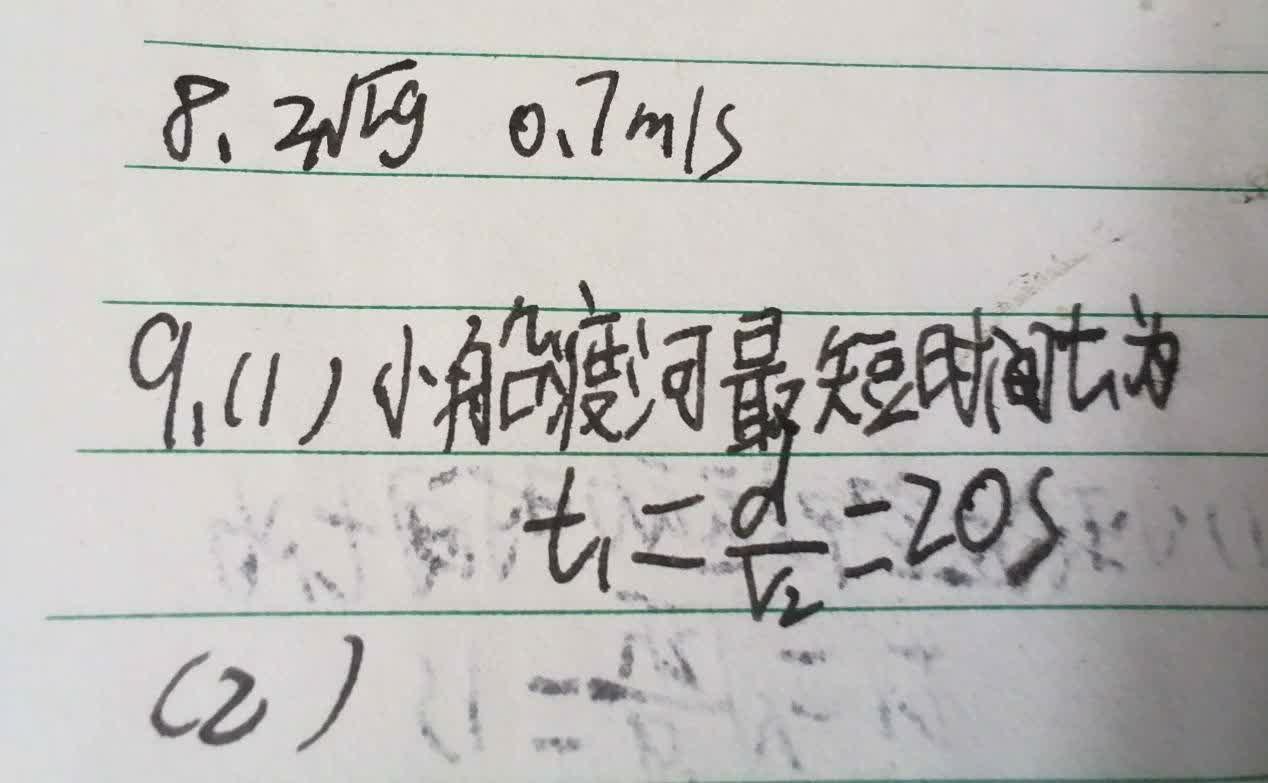 8. 2√Lg 0.7m/s
9.(1)小船渡河最短时间t₁为
t₁=d/v₂=20s
(2)